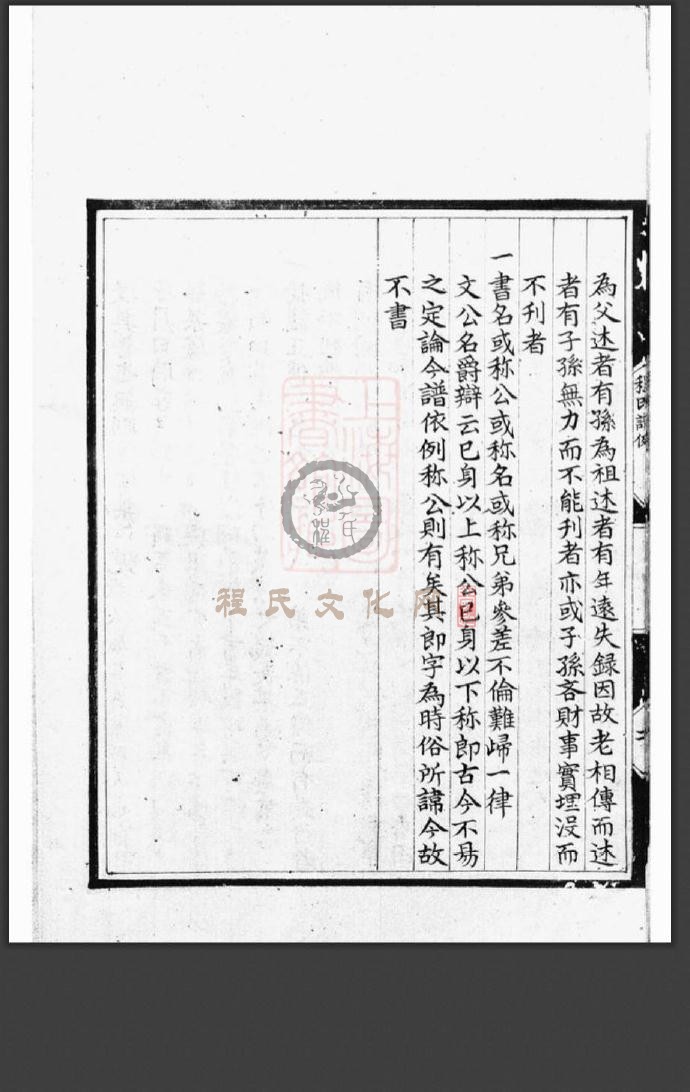 為父述者有孫為祖述者有年遠失録因故老相傳而述
者有子孫無力而不能刋者亦或子孫吝財事實埋没而
不刋者
一書名或称公或称名或称兄弟參差不倫難歸一律
文公名爵辯云已身以上称公已身以下称郎古今不易
之定論今譜依例称公則有矣其郎字為時俗所諱今故
不書
程氏譜
程氏文化网